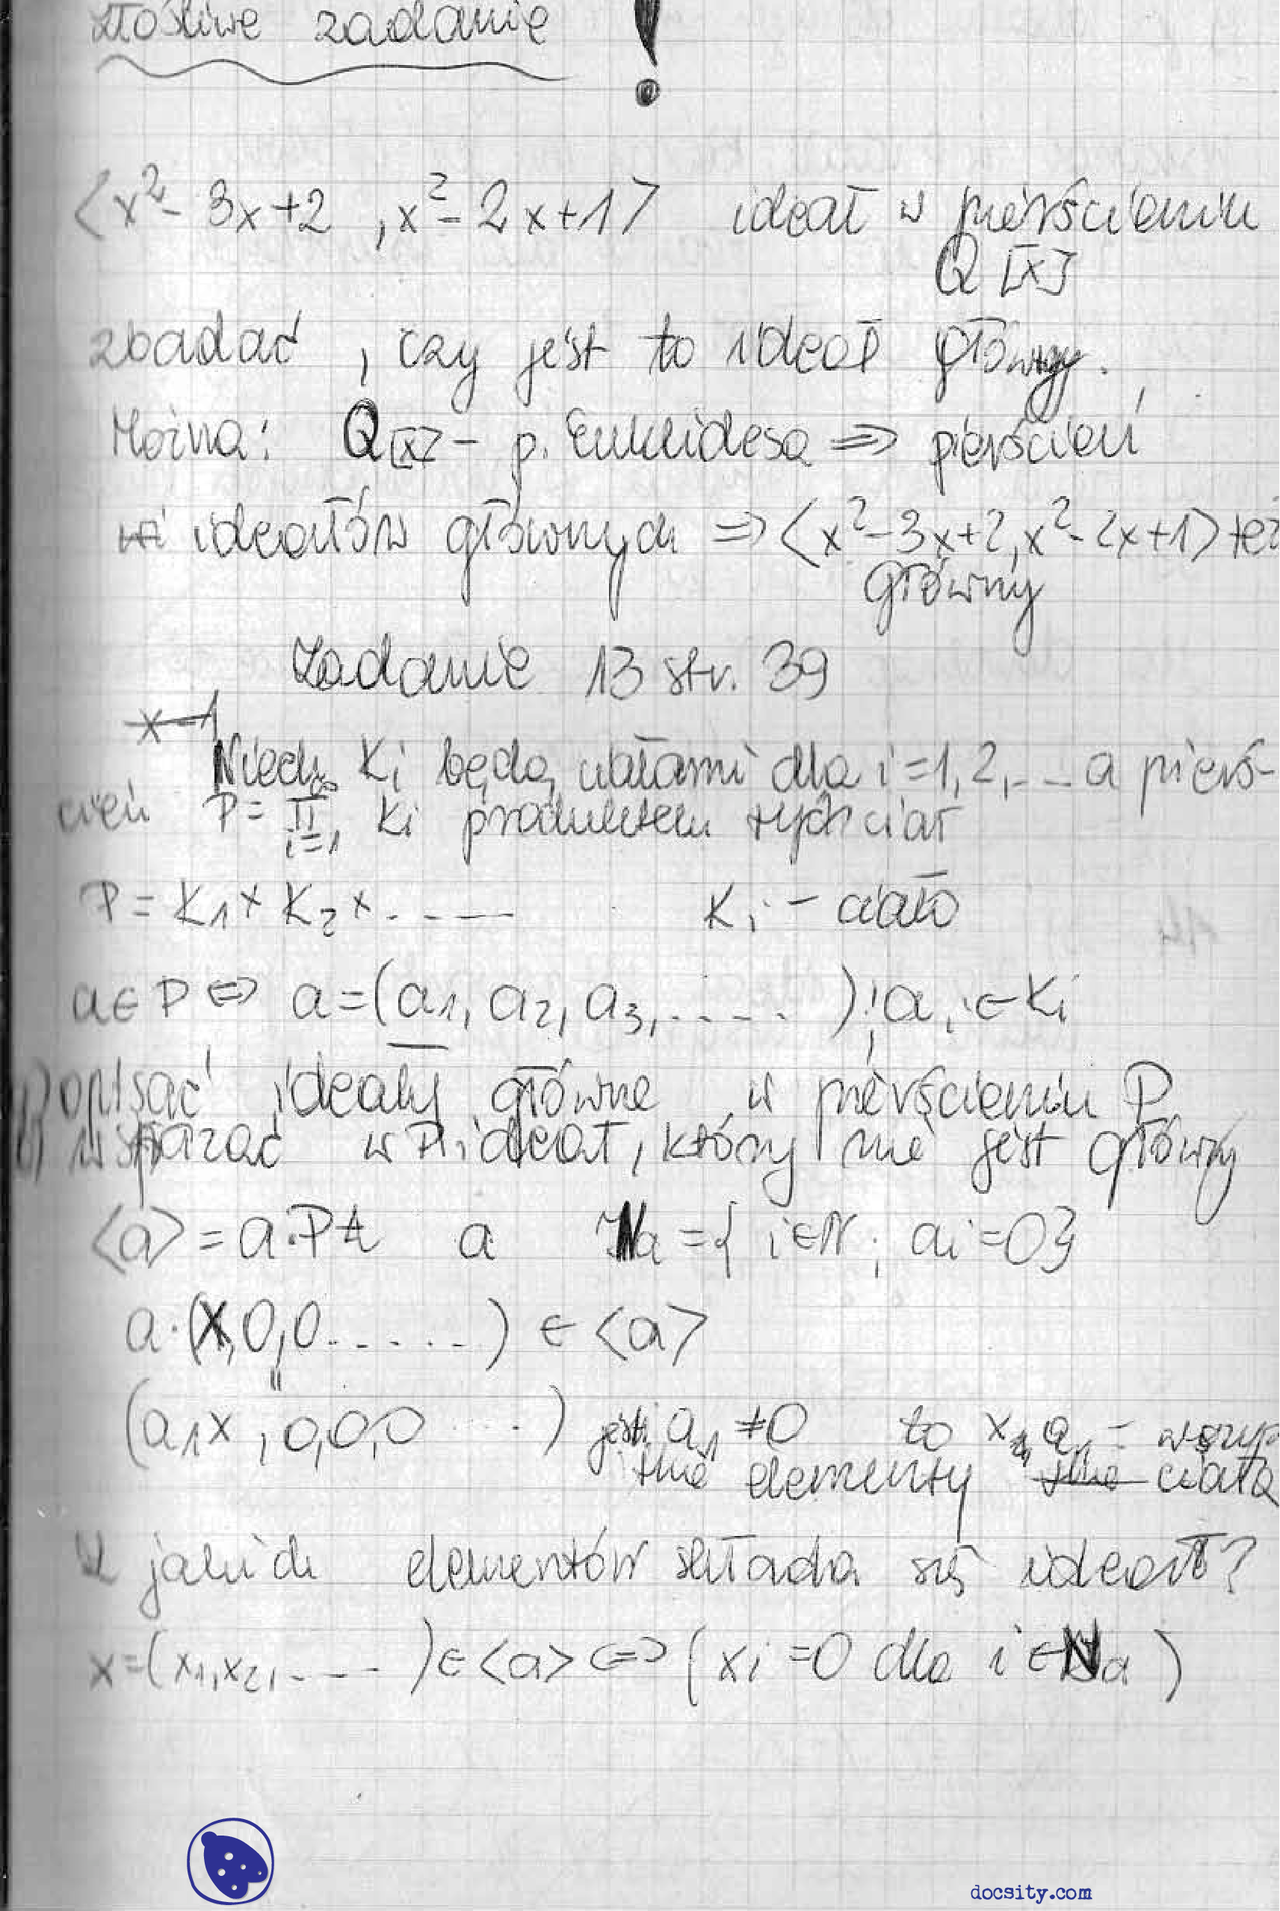 złośliwe zadanie !
<x²- 3x+2 , x²- 2x+1> ideał w pierścieniu
Q [x]
zbadać , czy jest to ideał główny.
Można: Q[x] - p. Euklidesa => pierścień
ideałów głównych => <x²-3x+2, x²-2x+1> też
główny
Zadanie 13 str. 39
x-1
Niech Ki będą ciałami dla i=1,2,... a pierś-
cień P= Π i=1 Ki produktem tych ciał
P= K₁ x K₂ x ...... Ki - ciało
a∈P <=> a=(a₁, a₂, a₃,......) ; ai∈Ki
a) opisać ideały główne w pierścieniu P
b) wskazać w P ideał, który nie jest główny
<a> = a·P a Na = { i∈N ; ai=0}
a·(x,0,0......) ∈ <a>
"
(a₁x , 0,0,0 ...) jeśli a₁ ≠0 to x₁ a₁ = wszys
tkie elementy ciała
Z jakich elementów składa się ideał?
x=(x₁,x₂,....) ∈<a> <=> (xi=0 dla i∈Na )
docsity.com